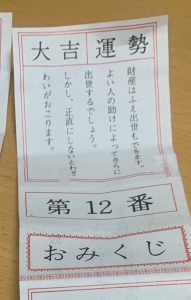 大吉運勢
財産はふえ出世もできます。
よい人の助けによってさらに
出世するでしょう。
しかし、正直にしないとわざ
わいがおこります。
第12番
おみくじ